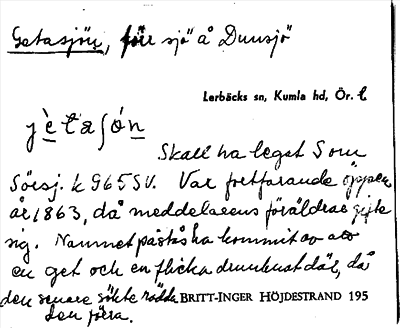 Getasjön, förr sjö å Dunsjö
Lerbäcks sn, Kumla hd, Ör. l
jètasón
Skall ha legat som
Sörsj. k 965 SV. Var fortfarande öppen
år 1863, då meddelarens föräldrar gifte
sig. Namnet påstås ha kommit av att
en get och en flicka drunknat där, då
den senare sökte rädda BRITT-INGER HÖJDESTRAND 195
den förra.